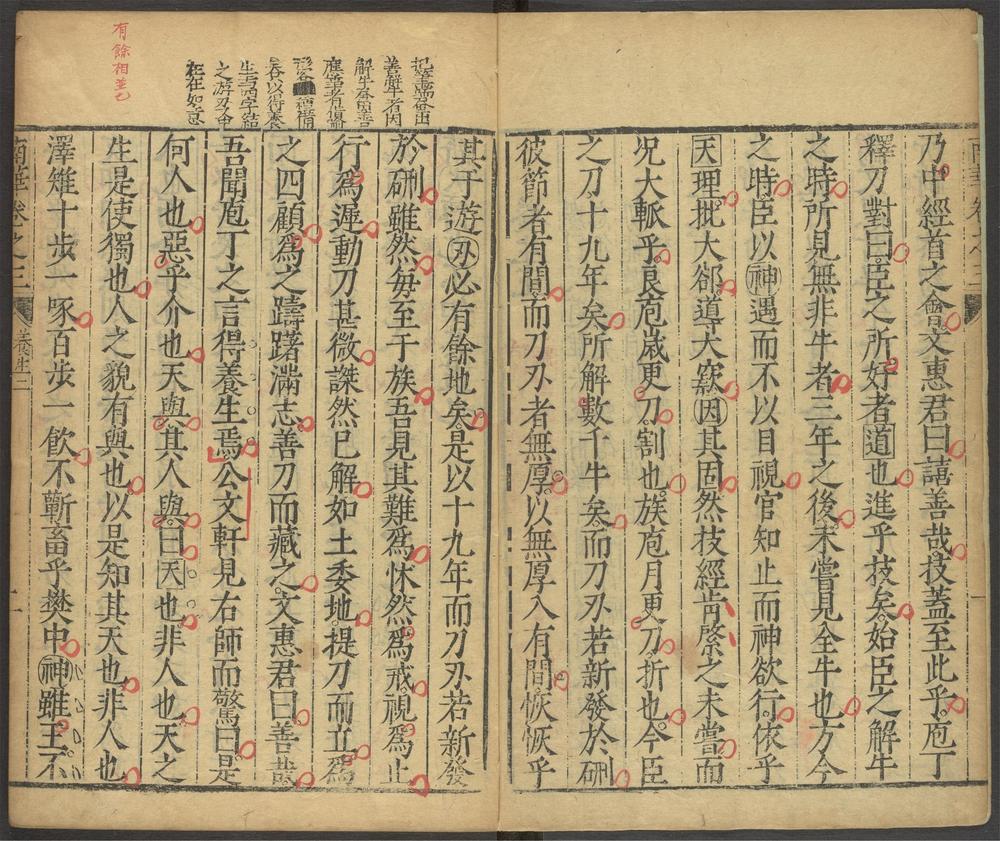 乃中經首之會文惠君曰譆善哉技蓋至此乎庖丁
釋刀對曰臣之所好者道也進乎技矣始臣之解牛
之時所見無非牛者三年之後未嘗見全牛也方今
之時臣以神遇而不以目視官知止而神欲行依乎
天理批大郤導大窾因其固然技經肯綮之未嘗而
况大軱乎良庖歲更刀割也族庖月更刀折也今臣
之刀十九年矣所解數千牛矣而刀刃若新發於硎
彼節者有間而刀刃者無厚以無厚入有間恢恢乎
其于遊刃必有餘地矣是以十九年而刀刃若新發
於硎雖然每至于族吾見其難爲怵然爲戒視爲止
行爲遲動刀甚微謋然已解如土委地提刀而立爲
之四顧爲之躊躇滿志善刀而藏之文惠君曰善哉
吾聞庖丁之言得養生焉公文軒見右師而驚曰是
何人也惡乎介也天與其人與曰天也非人也天之
生是使獨也人之貌有與也以是知其天也非人也
澤雉十步一啄百步一飲不蘄畜乎樊中神雖王不
南華卷之三 養生 二
善解牛者因
解牛
以得養
生 四字結
之游刃
在如意
有餘相